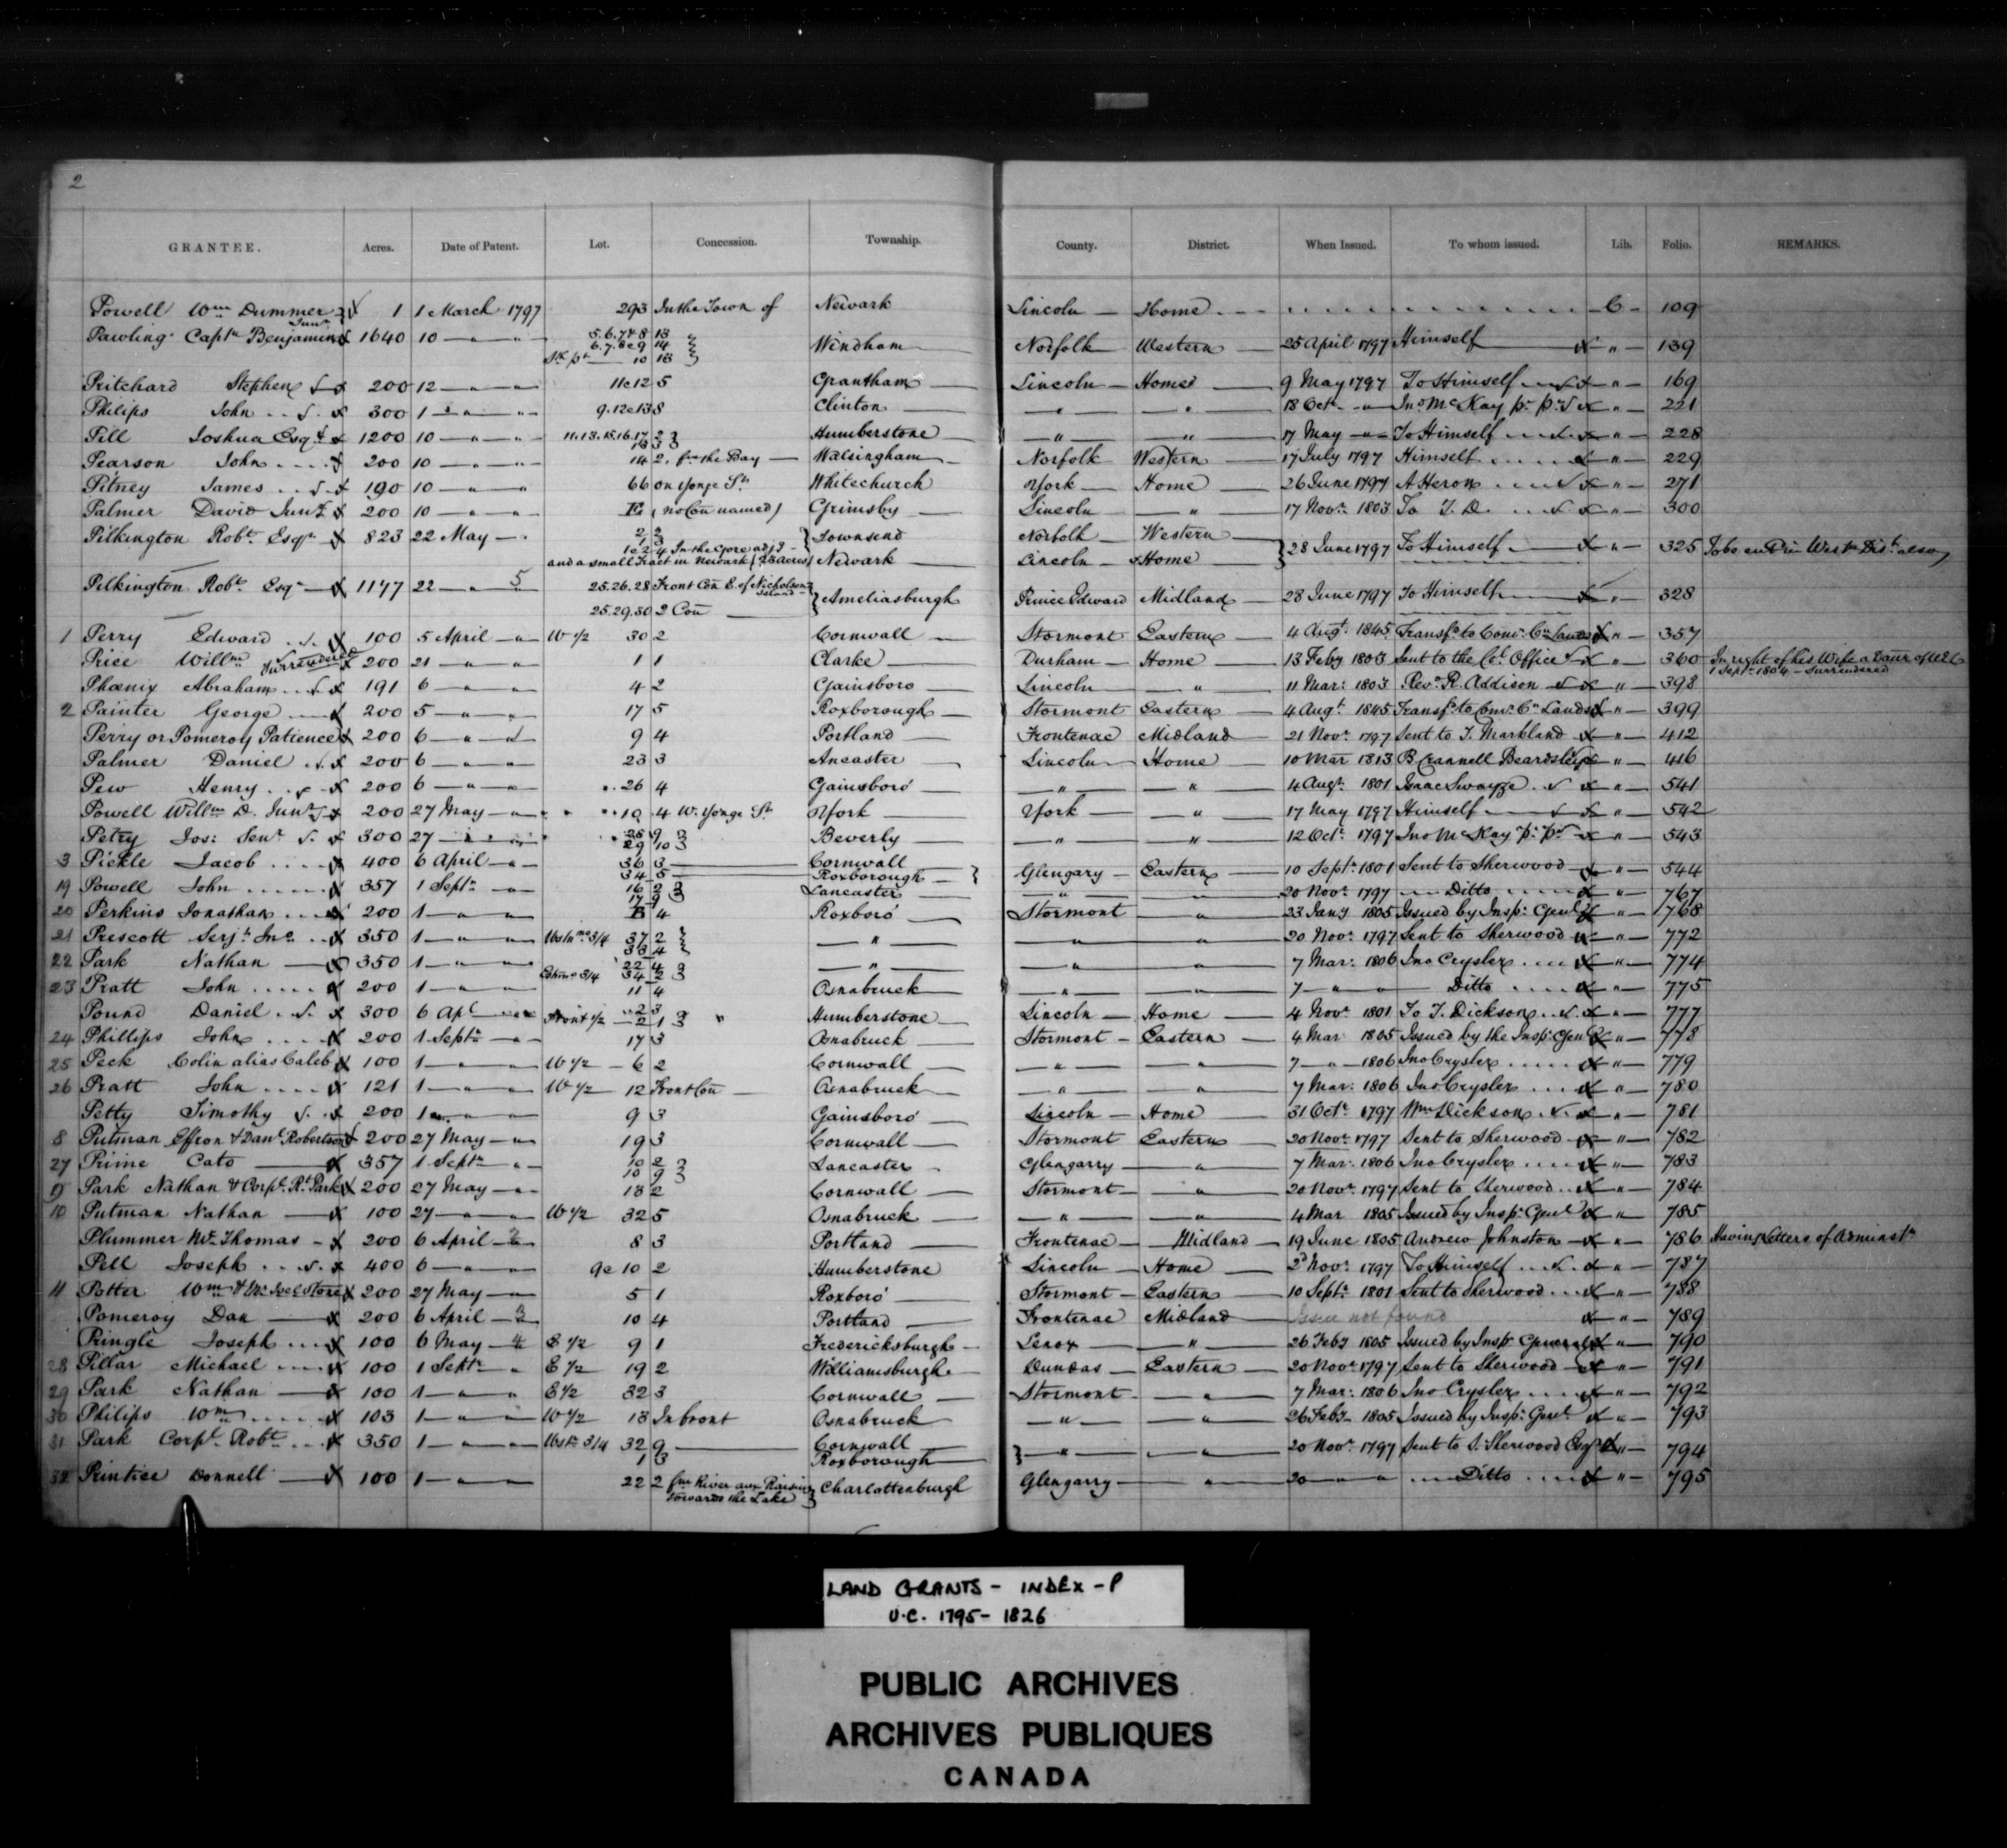 2
GRANTEE. Acres. Date of Patent. Lot. Concession. Township. County. District. When Issued. To whom issued. Lib. Folio. REMARKS.
Powell Wm Dummer 1 1 March 1797 293 In the Town of Newark Lincoln Home C 109
Junr
Pawling Captn Benjamin 1640 10 " " 5.6.7 & 8 13 Windham Norfolk Western 25 April 1797 Himself " 139
6.7.8 & 9 14
10 13
Pritchard Stephen 200 12 " " 11 & 12 5 Grantham Lincoln Home 9 May 1797 To Himself " 169
Philips John 300 1 " " 9.12 & 13 8 Clinton " " 18 Octr " Jno McKay " 221
Pill Joshua Esqr 1200 10 " " 11.13.15.16.17 2 Humberstone " " 17 May " To Himself " 228
Pearson John 200 10 " " 14 2. fm the Bay Walsingham Norfolk Western 17 July 1797 Himself " 229
Pitney James 190 10 " " 66 on Yonge St. Whitechurch York Home 26 June 1797 A Heron " 271
Palmer David Junr 200 10 " " E (no Con named) Grimsby Lincoln " 17 Novr 1803 To T. D. " 300
Pilkington Robt Esqr 823 22 May " 2 2 Townsend Norfolk Western 28 June 1797 To Himself " 325
1 3
1 & 2 4 In the Gore adjg
and a small Tract in Newark (23 acres) Newark Lincoln Home
Pilkington Robt Esqr 1147 22 " 5 25.26.28 Front Con E. of Nicholson Island Ameliasburgh Prince Edward Midland 28 June 1797 To Himself " 328
25.29.30 2 Con
1 Perry Edward 100 5 April " W 1/2 30 2 Cornwall Stormont Eastern 4 Augt 1845 Transfd to Comr Cn Lands " 357
Price Willm Surrendered 200 21 " " 1 1 Clarke Durham Home 13 Feby 1803 Sent to the Col Office " 360 In right of his Wife a Daur of UEL
1 Septr 1804 - Surrendered
Phœnix Abraham 191 6 " " 4 2 Gainsboro Lincoln " 11 Mar: 1803 Revd R. Addison " 398
2 Painter George 200 5 " " 17 5 Roxborough Stormont Eastern 4 Augt 1845 Transfd to Comr Cn Lands " 399
Perry or Pomeroy Patience 200 6 " " 9 4 Portland Frontenac Midland 21 Novr 1797 Sent to T. Markland " 412
Palmer Daniel 200 6 " " 23 3 Ancaster Lincoln Home 10 Mar 1813 B Crannell Beardsley " 416
Pew Henry 200 6 " " 26 4 Gainsboro " " 4 Augt 1801 Isaac Swayze " 541
Powell Willm D. Junr 200 27 May " 10 4 W. Yonge St York York " 17 May 1797 Himself " 542
Petry Jos: Senr 300 27 " " 9 Beverly " " 12 Octr 1797 Jno McKay " 543
29 10
3 Pickle Jacob 400 6 April " 36 3 Cornwall Glengary Eastern 10 Septr 1801 Sent to Sherwood " 544
34 5 Roxborough
19 Powell John 357 1 Septr " 16 2 Lancaster " " 20 Novr 1797 Ditto " 767
17 9
20 Perkins Jonathan 200 1 " " E 4 Roxboro Stormont " 23 Jany 1805 Issued by Inspr Genl " 768
21 Prescott Serjt Jno 350 1 " " 3/4 37 2 " " " 20 Novr 1797 Sent to Sherwood " 772
33 4
22 Park Nathan 350 1 " " 22 4 " " " 7 Mar: 1806 Jno Crysler " 774
3/4 34 2
23 Pratt John 200 1 " " 11 4 Osnabruck " " 7 " " Ditto " 775
Pound Daniel 300 6 Apl " 2 3 Humberstone Lincoln Home 4 Novr 1801 To T. Dickson " 777
Front 1/2 2 1
24 Phillips John 200 1 Septr " 17 3 Osnabruck Stormont Eastern 4 Mar 1805 Issued by the Inspr Genl " 778
25 Peck Colin alias Caleb 100 1 " " W 1/2 6 2 Cornwall " " 7 " 1806 Jno Crysler " 779
26 Pratt John 121 1 " " W 1/2 12 Front Con Osnabruck " " 7 Mar: 1806 Jno Crysler " 780
Petty Timothy 200 1 " " 9 3 Gainsboro Lincoln Home 31 Octr 1797 Wm Dickson " 781
8 Putman Effron & Danl Robertson 200 27 May " 19 3 Cornwall Stormont Eastern 20 Novr 1797 Sent to Sherwood " 782
27 Prime Cato 357 1 Septr " 10 2 Lancaster Glengarry " 7 Mar: 1806 Jno Crysler " 783
10 9
9 Park Nathan & Corpl Rt Park 200 27 May " 13 2 Cornwall Stormont " 20 Novr 1797 Sent to Sherwood " 784
10 Putman Nathan 100 27 " " W 1/2 32 5 Osnabruck " " 4 Mar 1805 Issued by Inspr Genl " 785
Plummer Mr Thomas 200 6 April " 8 3 Portland Frontenac Midland 19 June 1805 Andrew Johnston " 786 Having Letters of Adminstn
Pell Joseph 400 6 " " 9 & 10 2 Humberstone Lincoln Home 2d Novr 1797 To Himself " 787
11 Potter Wm & Mr Joel Stone 200 27 May " 5 1 Roxboro Stormont Eastern 10 Septr 1801 Sent to Sherwood " 788
Pomeroy Dan 200 6 April 3 10 4 Portland Frontenac Midland Issue not found " 789
Pringle Joseph 100 6 May 4 E 1/2 9 1 Fredericksburgh Lenox " 26 Feby 1805 Issued by Inspr General " 790
28 Pillar Michael 100 1 Septr " E 1/2 19 2 Williamsburgh Dundas Eastern 20 Novr 1797 Sent to Sherwood " 791
29 Park Nathan 100 1 " " E 1/2 32 3 Cornwall Stormont " 7 Mar: 1806 Jno Crysler " 792
30 Philips Wm 103 1 " " W 1/2 13 In front Osnabruck " " 26 Feby 1805 Issued by Inspr Genl " 793
31 Park Corpl Robt 350 1 " " 3/4 32 9 Cornwall " " 20 Novr 1797 Sent to S. Sherwood Esqr " 794
1 3 Roxborough
32 Printice Donnell 100 1 " " 22 2 fm River aux Raisin towards the Lake Charlottenburgh Glengarry " 20 " " Ditto " 795
LAND GRANTS - INDEX - P
U.C. 1795 - 1826
PUBLIC ARCHIVES
ARCHIVES PUBLIQUES
CANADA